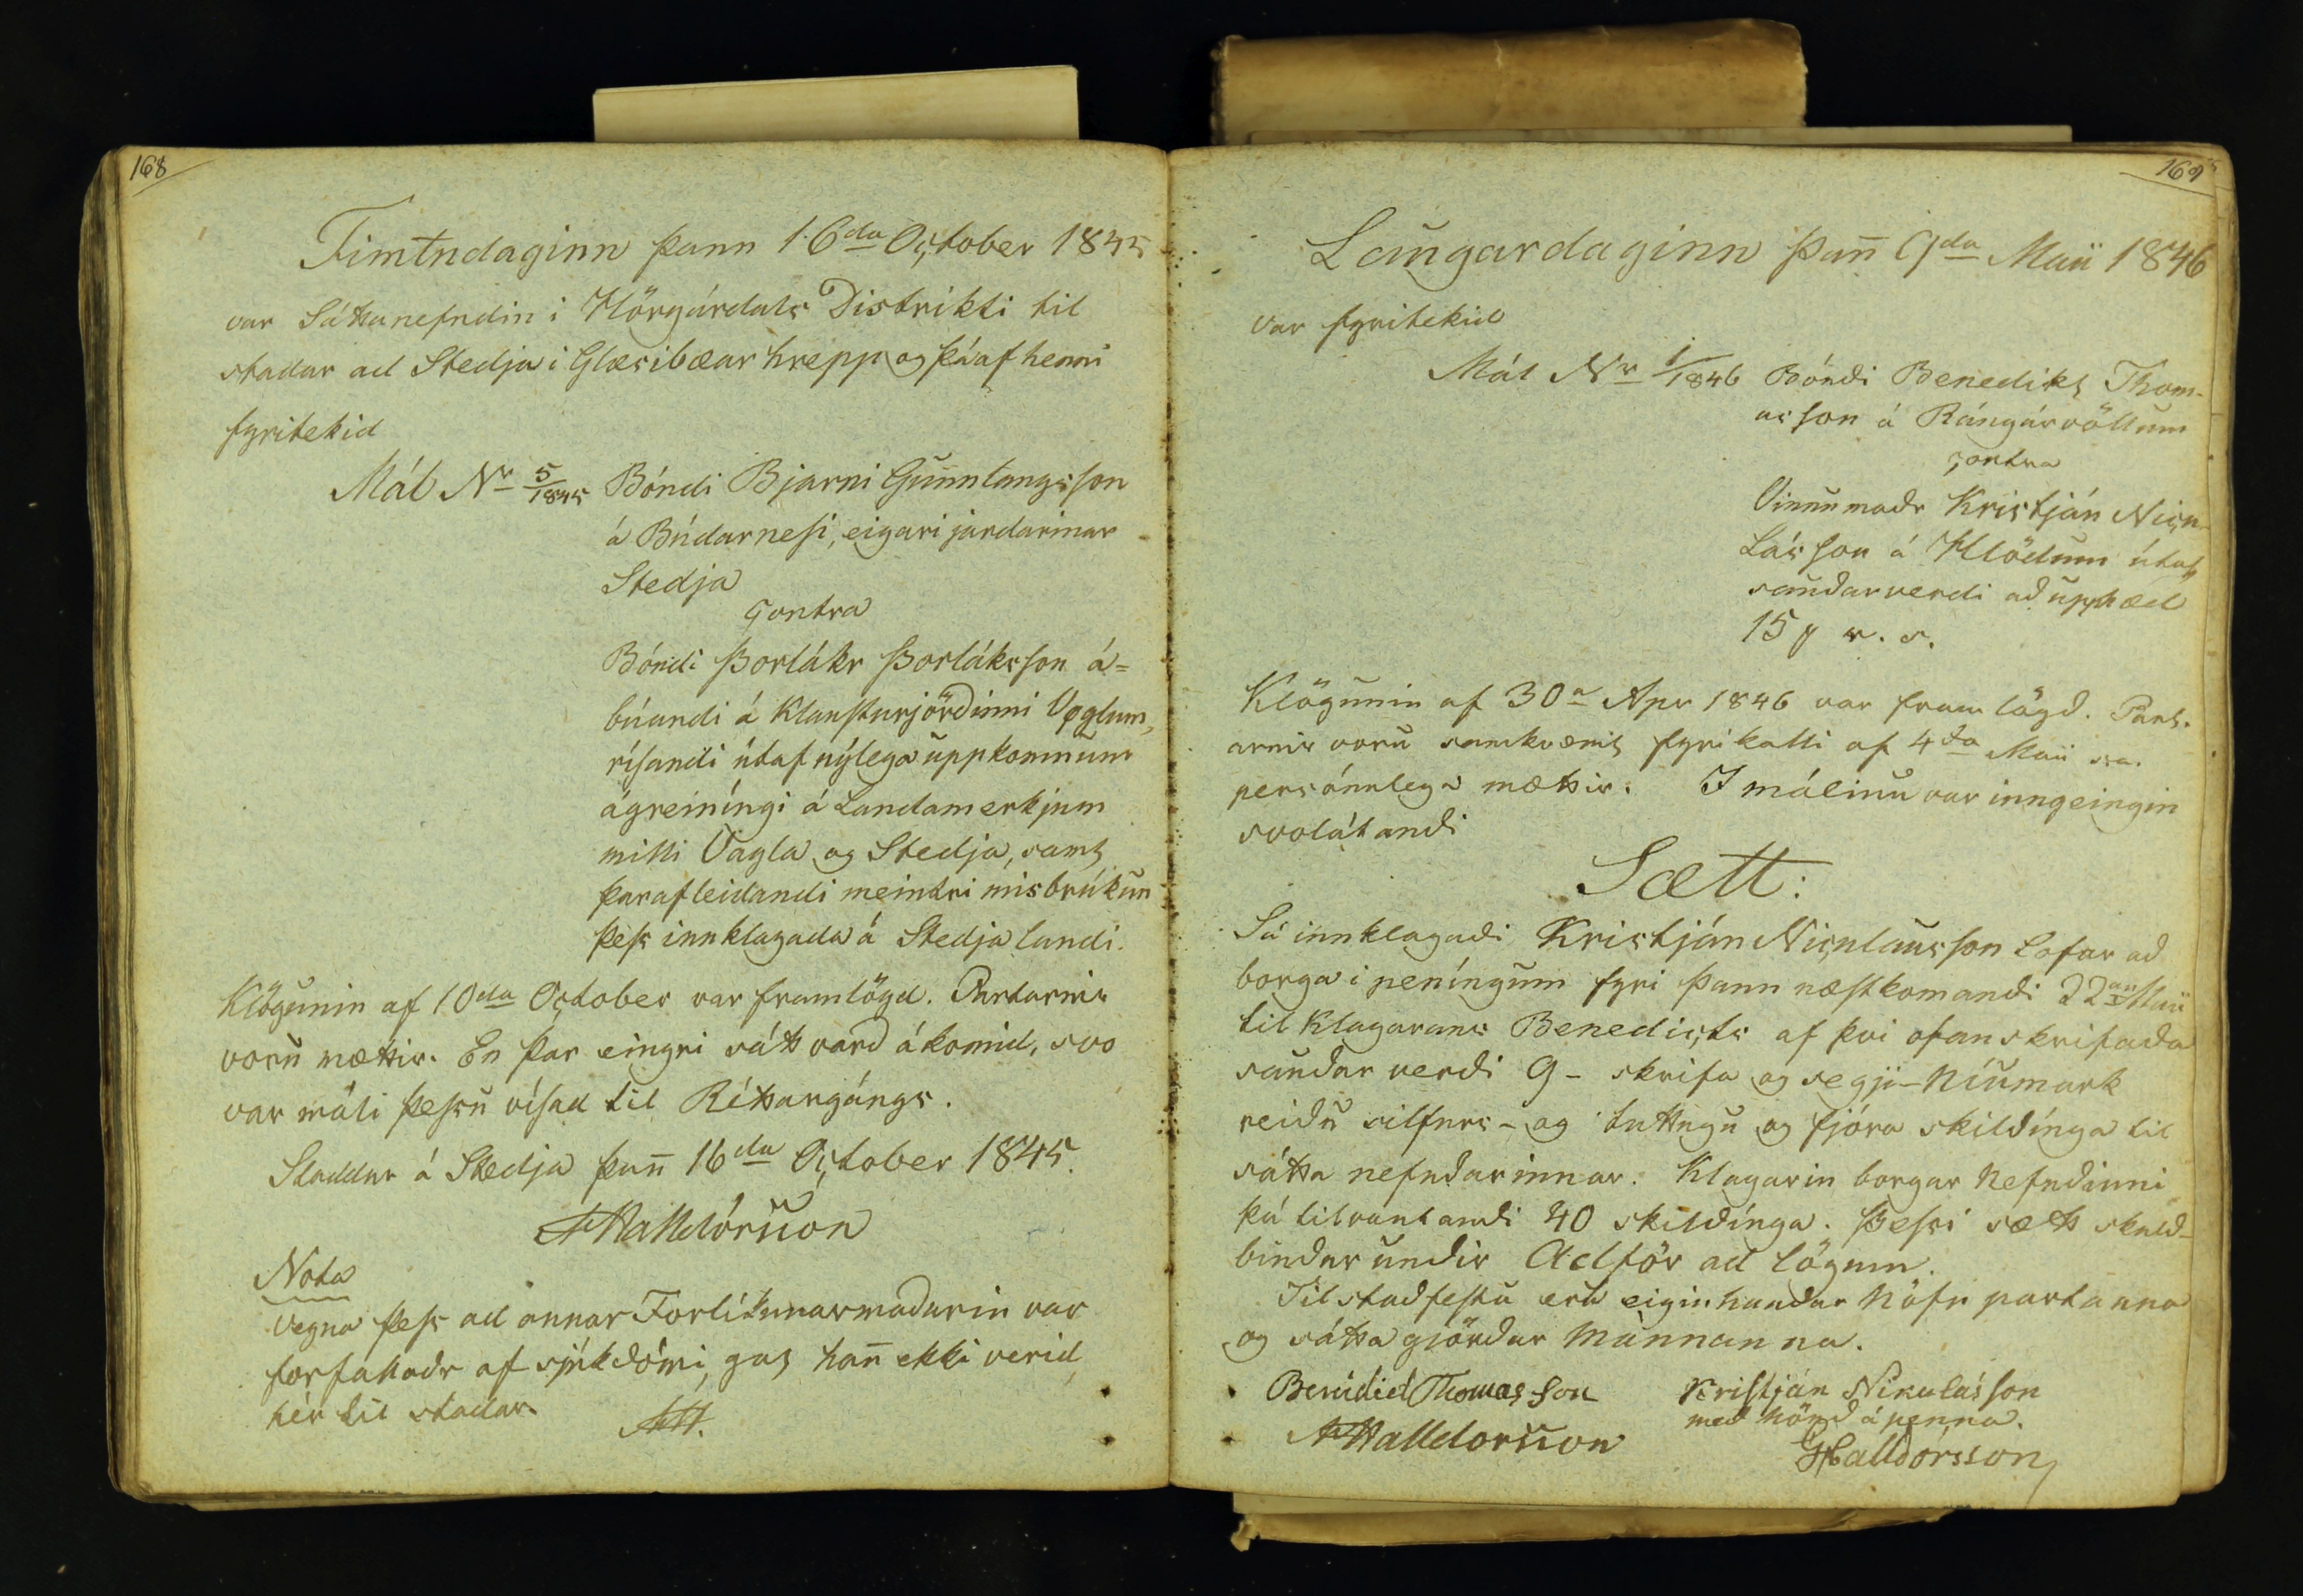 168
Fimtudaginn þann 16da October 1845
var Sáttanefndin i Hörgárdals Distrikti til
stadar ad Stedja i Glæsibæar hrepp og þá af henni
fyritekid
Mál Nr 5/1845 Bóndi Bjarni Gunnlaugsson
á Búdarnesi, eigari jardarinar
Stedja
contra
Bóndi Þorlákr Þorláksson á=
búandi á Klausturjörðinni Vøglum,
rísandi útaf nýlega uppkomnum
ágreiníngi á Landamerkjum
milli Vagla og Stedja, samt
þarafleidandi meintri misbrúkun
þess innklagada á Stedja landi.
Klögunin af 10da October var framlögd. Partarnir
voru mættir. En þar eingri sátt vard ákomid, svo
var máli þessu vísad til Réttargángs.
Staddur á Stedja þann̄ 16da October 1845.
AHalldórsson
Nota
Vegna þess ad annar Forlíkunarmadurin var
forfalladr af sjúkdómi, gat hann̄ ekki verid
hér til stadar.
AH.
169
Laugardaginn þann̄ 9da Maii 1846
var fyritekid
Mál Nr 1/1846 Bóndi Benedikt Thom-
asson á Rángárvöllum
contra
Vinnumadr Kristján Nicu-
lásson á Hlödum útaf
saudarverdi að upphæd
15 r. s.
Klögunin af 30a Apr 1846 var fram lögd. Part-
arnir voru samkvæmt fyrikalli af 4da Maii s.a.
persónulega mættir. I málinu var inngeingin
svolátandi
Sætt:
Sá innklagaði Kristján Niculausson lofar að
borga i peníngum fyri þann næstkomandi 22an Maii
til Klagarans Benedicts af því ofanskrifaða
sauðar verði 9 - skrifa og segji - Níumark
reiðu silfurs - og tuttugu og fjóra skildínga til
sátta nefndarinnar. Klagarin borgar Nefndinni
þá tilvantandi 40 skildínga. Þessi sætt skuld-
bindur undir Adför ad lögum.
Til staðfestu eru eiginhandar Nöfn partanna
og sátta gjörðar Mannanna.
Benidict Thomasson Kristján Nikulásson
með hönd á penna.
AHalldorsson GHalldórsson